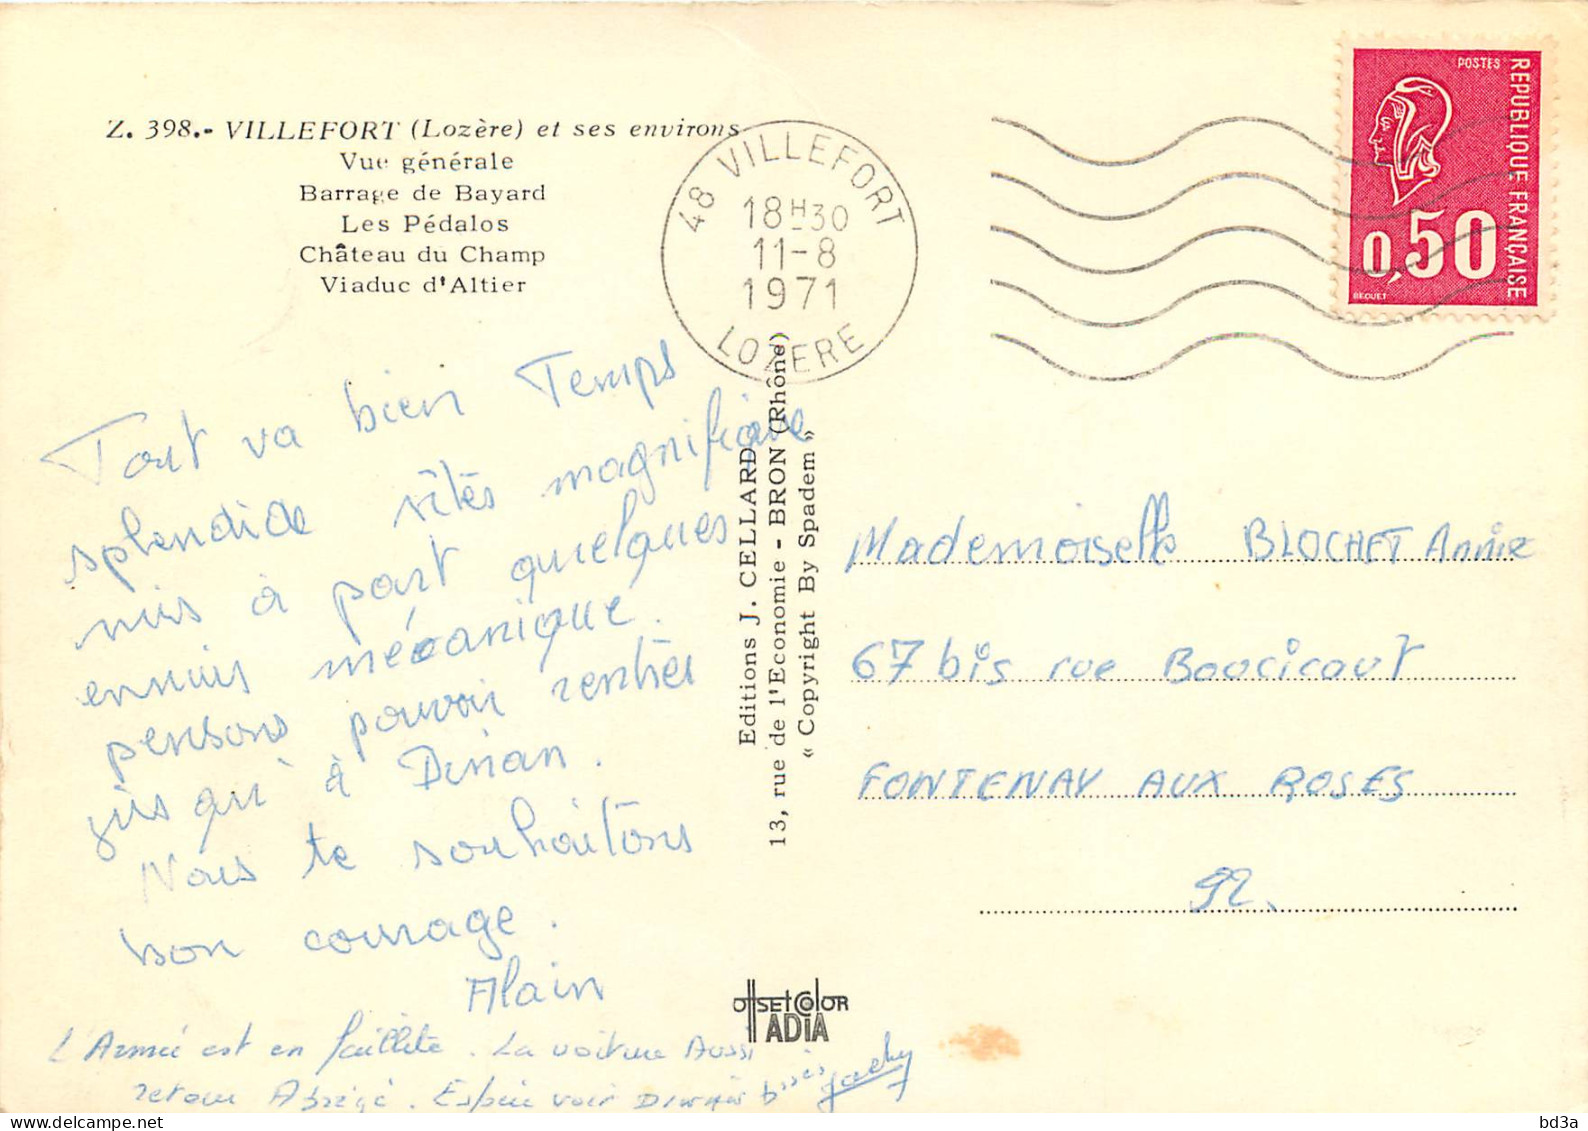 Z. 398.- VILLEFORT (Lozère) et ses environs
Vue générale
Barrage de Bayard
Les Pédalos
Château du Champ
Viaduc d'Altier
48 VILLEFORT
18H30
11-8
1971
LOZERE
POSTES
REPUBLIQUE FRANÇAISE
0,50
BEQUET
Tout va bien Temps
splendide sîtés magnifique
mis à part quelques
ennuis mécanique.
pensons pouvoir rentrés
jus qu'à Dinan.
Nous te souhaitons
bon courage.
Alain
L'Armée est en faillite. La voiture Aussi
retour Abrégé. Espère voir bises
Jacky
Editions J. CELLARD
13, rue de l'Economie - BRON (Rhône)
« Copyright By Spadem »
Mademoiselle BLOCHET Annie
67 bis rue Boucicaut
FONTENAY AUX ROSES
92.
offset color
ADIA
bd3a